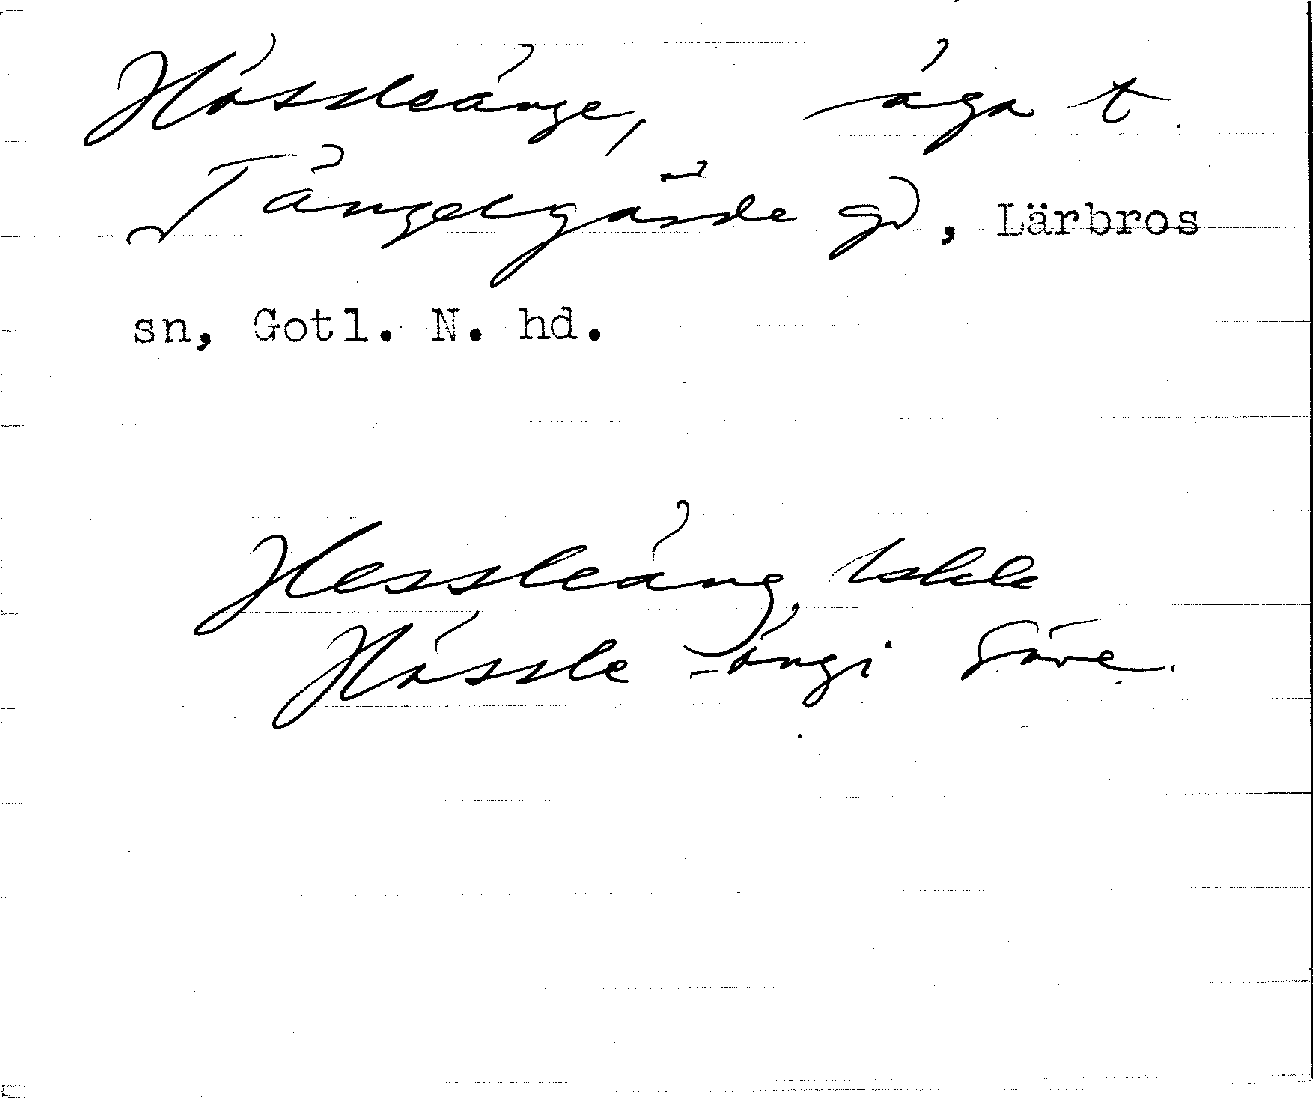 Hässleänge, äga t.
Tängelgärde gd, Lärbros
sn, Gotl. N. hd.
Hessleäng,
Hässle -ängi Säve.